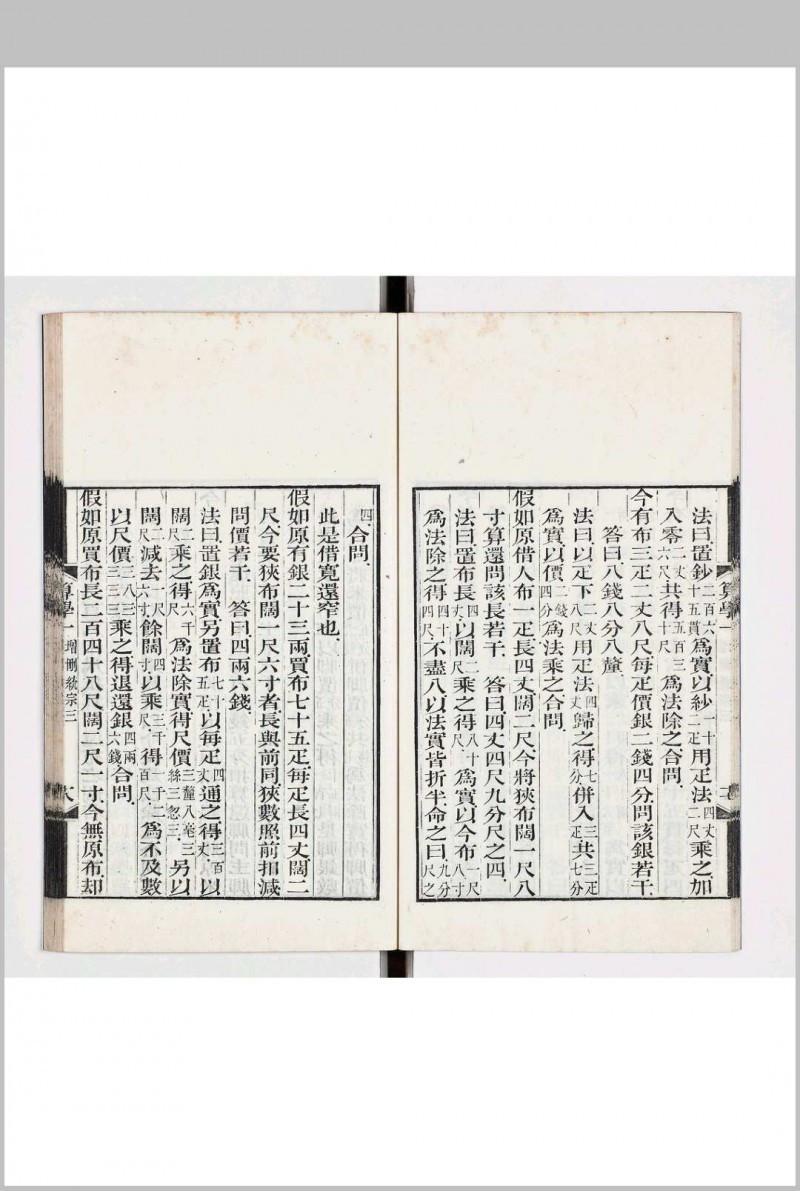 法曰置鈔二百六十五貫爲實以鈔一十二疋用疋法四丈二尺乘之加
入零二丈六尺共得五百三十尺爲法除之合問
今有布三疋二丈八尺每疋價銀二錢四分問該銀若干
答曰八錢八分八釐
法曰以疋下二丈八尺用疋法四丈歸之得七分併入三疋共三疋七分
爲實以價二錢四分爲法乘之合問
假如原借人布一疋長四丈闊二尺今將狹布闊一尺八
寸算還問該長若干 答曰四丈四尺九分尺之四
法曰置布長四丈以闊二尺乘之得八十尺爲實以今布一尺八寸
爲法除之得四十四尺不盡八以法實皆折半命之曰九分尺之
四合問
此是借寬還窄也
假如原有銀二十三兩買布七十五疋每疋長四丈闊二
尺今要狹布闊一尺六寸者長與前同狹數照前扣減
問價若干 答曰四兩六錢
法曰置銀爲實另置布七十五疋以每疋四丈通之得三百丈以
闊二尺乘之得六千尺爲法除實得尺價三釐八毫三絲三忽三另以
闊二尺減去一尺六寸餘闊四寸以乘三千尺得一千二百尺爲不及數
以尺價三八三三三乘之得退還銀四兩六錢合問
假如原買布長二百四十八尺闊二尺一寸今無原布却
算學一 增刪統宗三 八